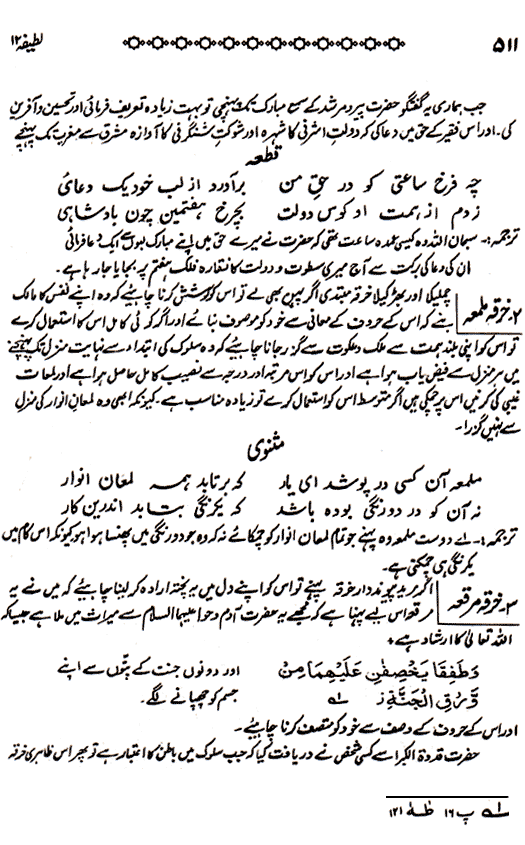 ۵۱۱
لطیفہ ۱۲
جب ہماری یہ گفتگو حضرت پیر و مرشد کے سمع مبارک تک پہنچی تو بہت زیادہ تعریف فرمائی اور تحسین و آفرین
کی۔ اور اس فقیر کے حق میں دعا کی کہ دولتِ اشرفی کا شہرہ اور شوکتِ شنگرفی کا آوازہ مشرق سے مغرب تک پہنچے
قطعہ
چہ فرخ ساعتی کو در حقِ من برآورد از لب خود یک دعائی
زدم از ہمت او کوس دولت بچرخ ہفتمین چون بادشاہی
ترجمہ:۔ سبحان اللہ وہ کیسی عمدہ ساعت تھی کہ حضرت نے میرے حق میں اپنے مبارک لبوں سے ایک دعا فرمائی
ان کی دعا کی برکت سے آج میری سطوت و دولت کا نقارہ فلک ہفتم پر بجایا جا رہا ہے۔
۲۔ خرقہ ملمعہ چمکیلا اور بھڑکیلا خرقہ مبتدی اگر پہن بھی لے تو اس کو کوشش کرنا چاہیئے کہ وہ اپنے نفس کا مالک
بنے کہ اس کے حروف کے معانی سے خود کو موصوف بنائے اور اگر کوئی کامل اس کا استعمال کرے
تو اس کو اپنی بلند ہمت سے ملک و ملکوت سے گزر جانا چاہیئے کہ وہ سلوک کی ابتداء سے نہایت منزل تک پہنچنے
میں ہر منزل سے فیض یاب ہوا ہے اور اس کو اس مرتبہ اور درجہ سے نصیب کامل حاصل ہوا ہے اور لمعات
غیبی کی کرنیں اس پر چمکی ہیں اگر متوسط اس کو استعمال کرے تو زیادہ مناسب ہے۔ کیونکہ ابھی وہ لمعان انوار کی منزل
سے نہیں گزرا۔
مثنوی
ملمعہ آن کسی در پوشد ای یار کہ برتابد ہمہ لمعان انوار
نہ آن کو در دو رنگی بودہ باشد کہ یکرنگی بتابد اندرین کار
ترجمہ:۔ اے دوست ملمعہ وہ پہنے جو تمام لمعان انوار کو چمکائے نہ کہ وہ جو دو رنگی میں پھنسا ہوا ہو کیونکہ اس کام میں
یکرنگی ہی چمکتی ہے۔
۳۔ خرقہ مرقعہ اگر مرید پیوند دار خرقہ پہنے تو اس کو اپنے دل میں یہ پختہ ارادہ کر لینا چاہیئے کہ میں نے یہ
مرقعہ اس لیے پہنا ہے کہ مجھے یہ حضرت آدم و حوا علیہما السلام سے میراث میں ملا ہے جیسا کہ
اللہ تعالیٰ کا ارشاد ہے۔
وَطَفِقَا يَخْصِفٰنِ عَلَيْهِمَا مِنْ اور دونوں جنت کے پتّوں سے اپنے
وَّرَقِ الْجَنَّةِ ز لہ جسم کو چھپانے لگے۔
اور اس کے حروف کے وصف سے خود کو متصف کرنا چاہیئے۔
حضرت قدوۃ الکبرا سے کسی شخص نے دریافت کیا کہ جب سلوک میں باطن کا اعتبار ہے تو پھر اس ظاہری خرقہ
لہ پ ۱۶ طٰہٰ ۱۲۱